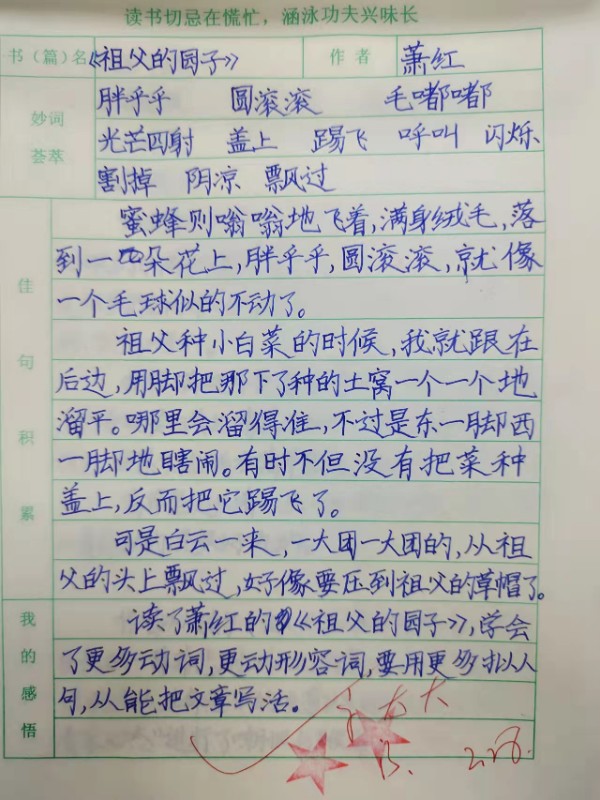 读书切忌在慌忙，涵泳功夫兴味长
书（篇）名 《祖父的园子》 作者 萧红
妙词荟萃
胖乎乎 圆滚滚 毛嘟嘟
光芒四射 盖上 踢飞 呼叫 闪烁
割掉 阴凉 飘过
佳句积累
蜜蜂则嗡嗡地飞着，满身绒毛，落
到一朵花上，胖乎乎，圆滚滚，就像
一个毛球似的不动了。
祖父种小白菜的时候，我就跟在
后边，用脚把那下了种的土窝一个一个地
溜平。哪里会溜得准，不过是东一脚西
一脚地瞎闹。有时不但没有把菜种
盖上，反而把它踢飞了。
可是白云一来，一大团一大团的，从祖
父的头上飘过，好像要压到祖父的草帽了。
我的感悟
读了萧红的《祖父的园子》，学会
了更多动词，更动形容词，要用更多拟人
句，从能把文章写活。